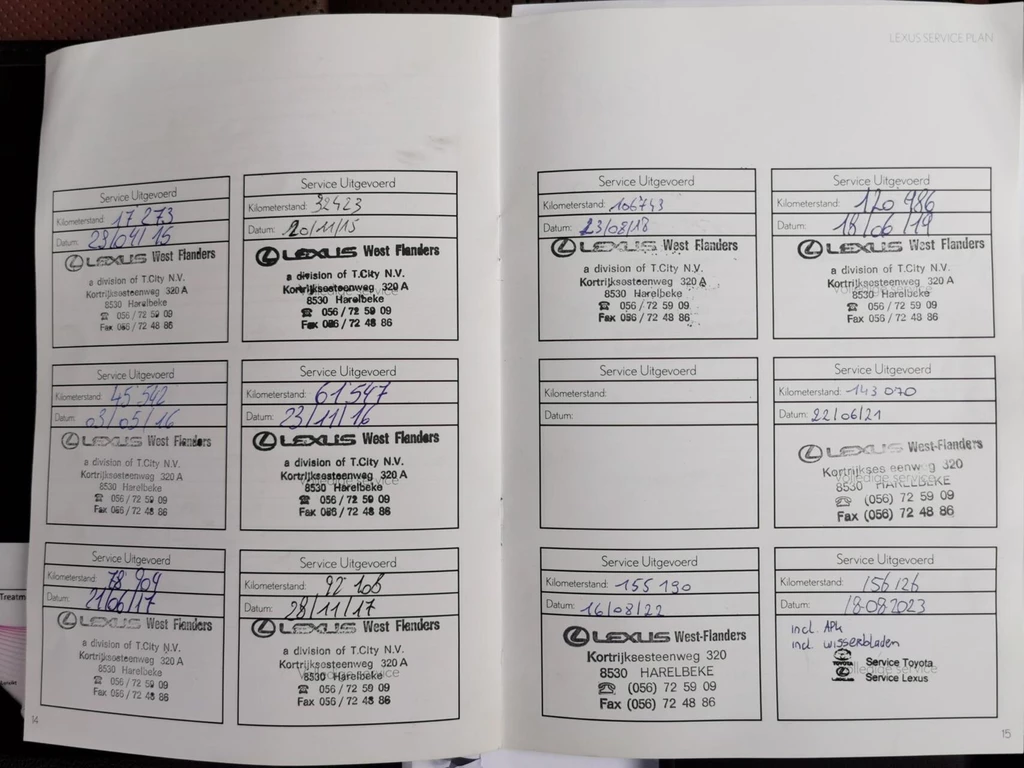 LEXUS SERVICE PLAN
Service Uitgevoerd
Kilometerstand: 17 273
Datum: 23/04/15
LEXUS West Flanders
a division of T.City N.V.
Kortrijksesteenweg 320 A
8530 Harelbeke
☎ 056 / 72 59 09
Fax 056 / 72 48 86
Service Uitgevoerd
Kilometerstand: 32423
Datum: 20/11/15
LEXUS West Flanders
a division of T.City N.V.
Kortrijksesteenweg 320 A
8530 Harelbeke
☎ 056 / 72 59 09
Fax 056 / 72 48 86
Service Uitgevoerd
Kilometerstand: 45 542
Datum: 03/05/16
LEXUS West Flanders
a division of T.City N.V.
Kortrijksesteenweg 320 A
8530 Harelbeke
☎ 056 / 72 59 09
Fax 056 / 72 48 86
Service Uitgevoerd
Kilometerstand: 61 547
Datum: 23/11/16
LEXUS West Flanders
a division of T.City N.V.
Kortrijksesteenweg 320 A
8530 Harelbeke
☎ 056 / 72 59 09
Fax 056 / 72 48 86
Service Uitgevoerd
Kilometerstand: 78 904
Datum: 21/06/17
LEXUS West Flanders
a division of T.City N.V.
Kortrijksesteenweg 320 A
8530 Harelbeke
☎ 056 / 72 59 09
Fax 056 / 72 48 86
Service Uitgevoerd
Kilometerstand: 92 106
Datum: 28/11/17
LEXUS West Flanders
a division of T.City N.V.
Kortrijksesteenweg 320 A
8530 Harelbeke
☎ 056 / 72 59 09
Fax 056 / 72 48 86
14
Service Uitgevoerd
Kilometerstand: 106743
Datum: 23/08/18
LEXUS West Flanders
a division of T.City N.V.
Kortrijksesteenweg 320 A
8530 Harelbeke
☎ 056 / 72 59 09
Fax 056 / 72 48 86
Service Uitgevoerd
Kilometerstand: 120 486
Datum: 18/06/19
LEXUS West Flanders
a division of T.City N.V.
Kortrijksesteenweg 320 A
Volledige service
8530 Harelbeke
☎ 056 / 72 59 09
Fax 056 / 72 48 86
Service Uitgevoerd
Kilometerstand:
Datum:
Service Uitgevoerd
Kilometerstand: 143 070
Datum: 22/06/21
LEXUS West-Flanders
320
Volledige service
8530 HARELBEKE
☎ (056) 72 59 09
Fax (056) 72 48 86
Service Uitgevoerd
Kilometerstand: 155 190
Datum: 16/08/22
LEXUS West-Flanders
Kortrijksesteenweg 320
8530 HARELBEKE
☎ (056) 72 59 09
Fax (056) 72 48 86
Service Uitgevoerd
Kilometerstand: 156 126
Datum: 18-08-2023
incl. APK
incl wisserbladen
TOYOTA Service Toyota
Volledige service
LEXUS Service Lexus
15